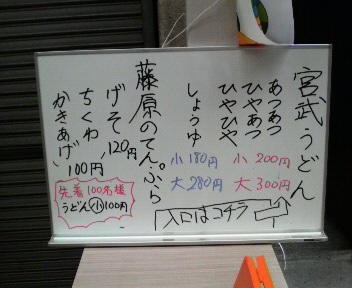 宮武うどん
あつあつ
ひやあつ
ひやひや
小 200円
大 300円
しょうゆ
小 180円
大 280円
藤原のてんぷら
げそ 120円
ちくわ
かきあげ 100円
先着100名様
うどん小100円
入口はコチラ